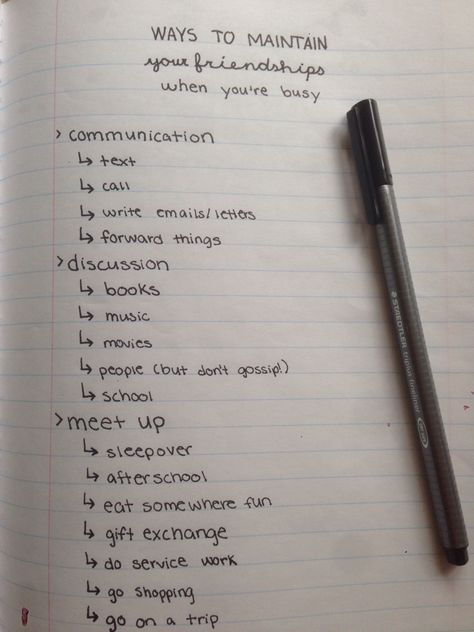 WAYS TO MAINTAIN
your friendships
when you're busy
> communication
↳ text
↳ call
↳ write emails/letters
↳ forward things
> discussion
↳ books
↳ music
↳ movies
↳ people (but don't gossip!)
↳ school
> meet up
↳ sleepover
↳ afterschool
↳ eat somewhere fun
↳ gift exchange
↳ do service work
↳ go shopping
↳ go on a trip
STAEDTLER triplus fineliner